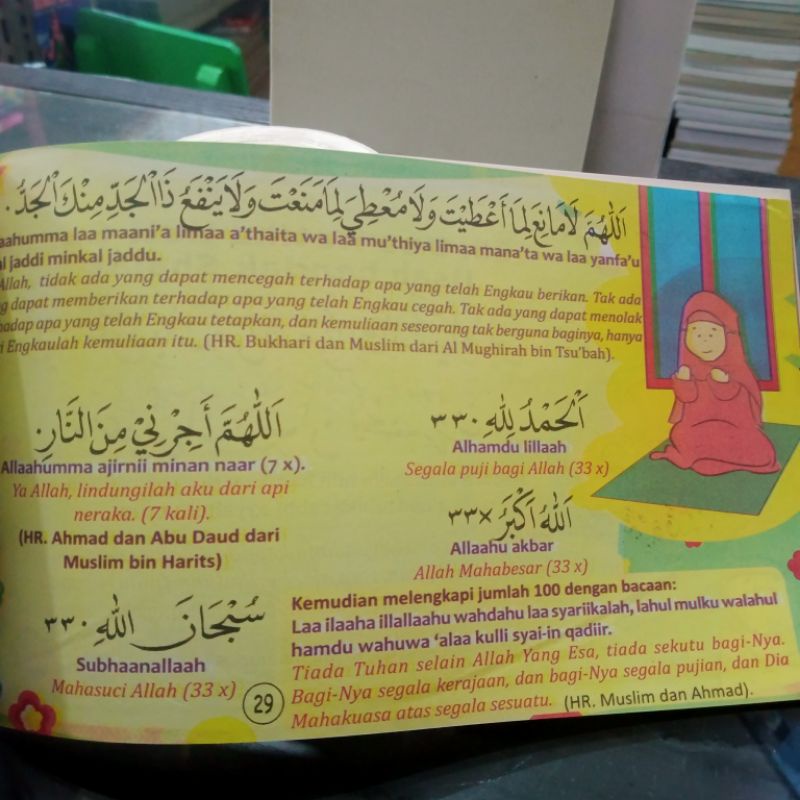 اَللّٰهُمَّ لَا مَانِعَ لِمَا أَعْطَيْتَ وَلَا مُعْطِيَ لِمَا مَنَعْتَ وَلَا يَنْفَعُ ذَا الْجَدِّ مِنْكَ الْجَدُّ.
aahumma laa maani'a limaa a'thaita wa laa mu'thiya limaa mana'ta wa laa yanfa'u
al jaddi minkal jaddu.
Allah, tidak ada yang dapat mencegah terhadap apa yang telah Engkau berikan. Tak ada
ng dapat memberikan terhadap apa yang telah Engkau cegah. Tak ada yang dapat menolak
hadap apa yang telah Engkau tetapkan, dan kemuliaan seseorang tak berguna baginya, hanya
i Engkaulah kemuliaan itu. (HR. Bukhari dan Muslim dari Al Mughirah bin Tsu'bah).
اَللّٰهُمَّ أَجِرْنِيْ مِنَ النَّارِ.
Allaahumma ajirnii minan naar (7 x).
Ya Allah, lindungilah aku dari api
neraka. (7 kali).
(HR. Ahmad dan Abu Daud dari
Muslim bin Harits)
سُبْحَانَ اللّٰهِ ٠٣٣
Subhaanallaah
Mahasuci Allah (33 x)
اَلْحَمْدُ لِلّٰهِ ٠٣٣
Alhamdu lillaah
Segala puji bagi Allah (33 x)
اَللّٰهُ أَكْبَرُ ×٣٣
Allaahu akbar
Allah Mahabesar (33 x)
Kemudian melengkapi jumlah 100 dengan bacaan:
Laa ilaaha illallaahu wahdahu laa syariikalah, lahul mulku walahul
hamdu wahuwa 'alaa kulli syai-in qadiir.
Tiada Tuhan selain Allah Yang Esa, tiada sekutu bagi-Nya.
Bagi-Nya segala kerajaan, dan bagi-Nya segala pujian, dan Dia
Mahakuasa atas segala sesuatu. (HR. Muslim dan Ahmad).
29